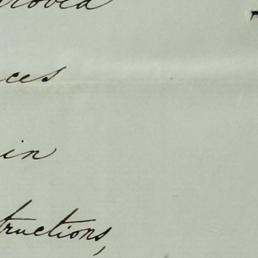 roved
ces
in
tructions,